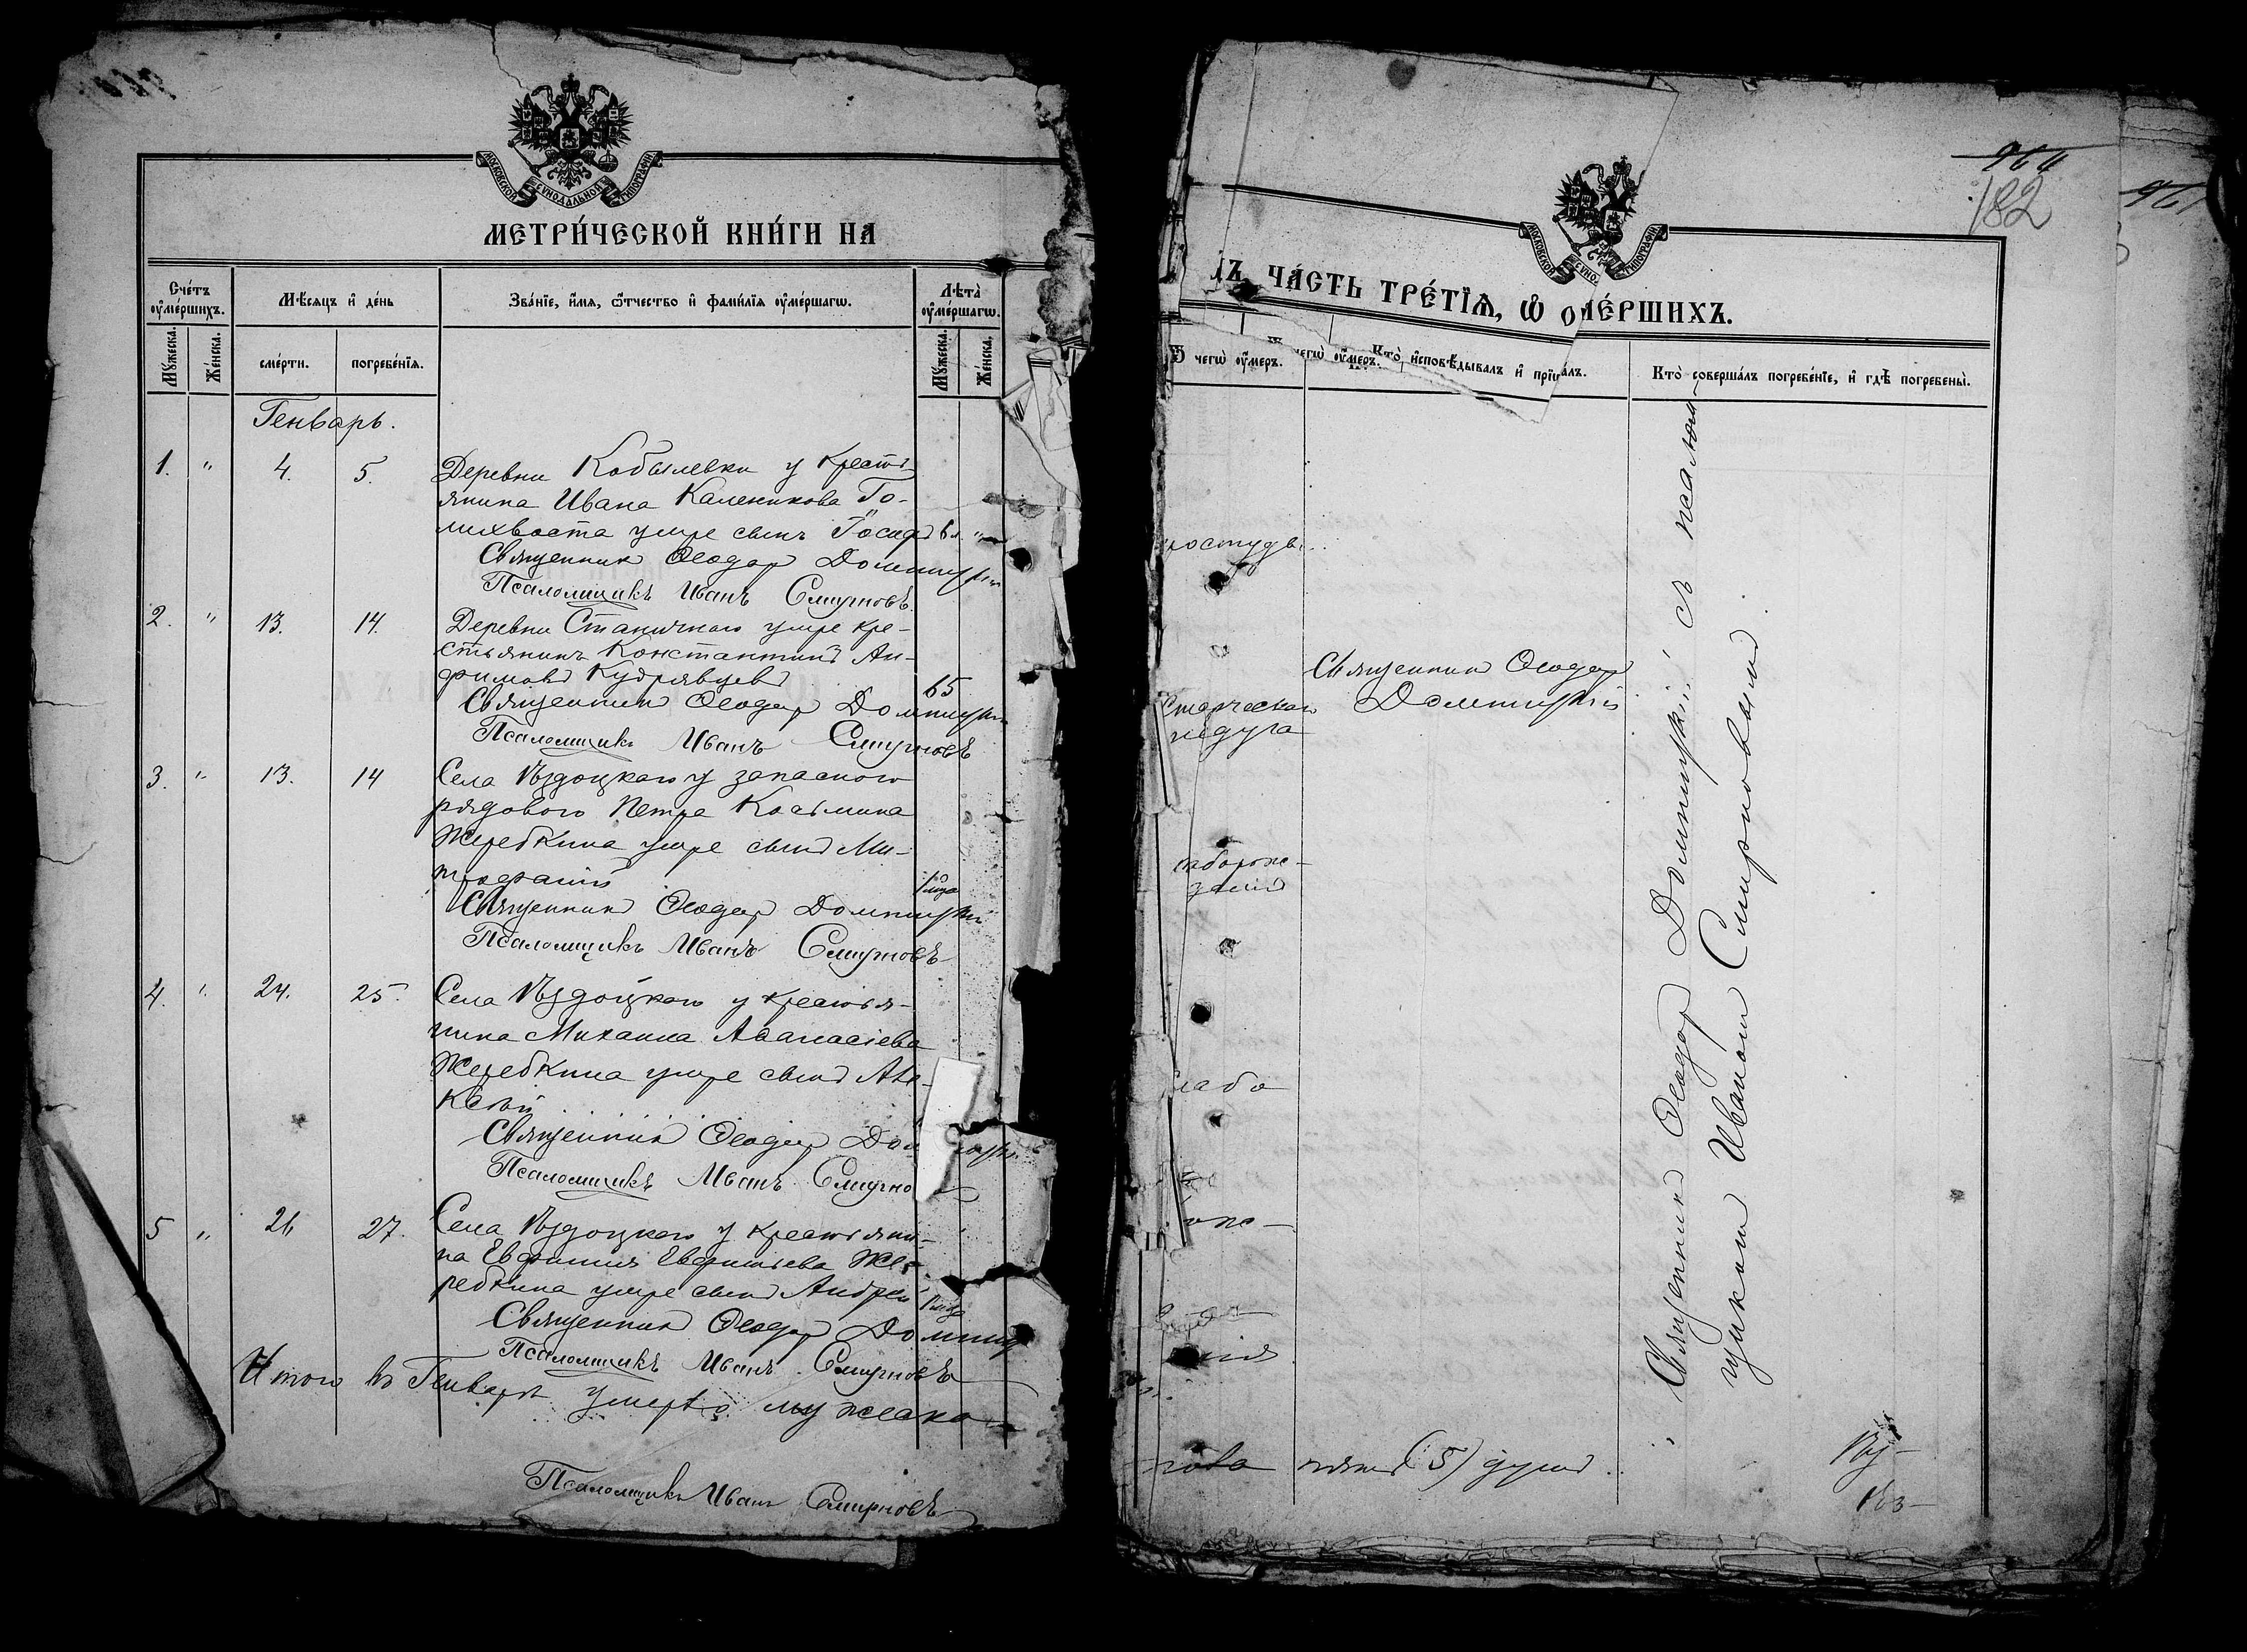 МОСКОВСКОЙ СѴНОДАЛЬНОЙ ТИПОГРАФІИ
МЕТРИ́ЧЕСКОЙ КНИ́ГИ НА
Сче́тъ оу҆ме́ршихъ.
Мѣ́сяцъ и҆ де́нь
Зва́нїе, и҆́мя, ѻ҆́тчество и҆ фами́лїя оу҆ме́ршагѡ.
Лѣта̀ оу҆ме́ршагѡ.
Мꙋ́жеска.
Же́нска.
сме́рти.
погребе́нїѧ.
Мꙋ́жеска.
Же́нска.
Генварь.
1. " 4. 5. Деревни Кобылевки у крестъ-
янина Ивана Каленикова Го-
лихвоста умре сынъ Іосифъ 6
Священник Ѳеодор Домницкій
Псаломщикъ Иванъ Смирновъ.
2. " 13. 14. Деревни Станичного умре кре-
стьянинъ Константинъ Ан-
фимовъ Кудрявцевъ 65
Священник Ѳеодор Домницкій
Псаломщикъ Иванъ Смирновъ
3. " 13. 14 Села Ѣздоцкаго у запасного
рядового Петра Косьмина
Жеребкина умре сынъ Ми-
трофаній
Священникъ Ѳеодор Домницкій
Псаломщикъ Иванъ Смирновъ
4. " 24. 25. Села Ѣздоцкаго у крестья-
нина Михаила Аѳанасіева
Жеребкина умре сынъ Але-
ксѣй
Священникъ Ѳеодор Дом ницкій
Псаломщикъ Иванъ Смирно
5 " 26 27. Села Ѣздоцкаго у крестьяни-
на Евфимія Евфиміева Же-
ребкина умре сынъ Андрей
Священникъ Ѳеодор Домниц
Псаломщикъ Иванъ Смирновъ
Итого въ Генварѣ умерло мужеска
Псаломщикъ Иванъ Смирновъ
182
МОСКОВСКОЙ СѴНО ТИПОГРАФІИ
ЧА́СТЬ ТРЕ́ТЇѦ, Ѡ҆ ОУ҆МЕ́РШИХЪ.
чегѡ̀ оу҆́меръ.
Кто̀ и҆сповѣ́дывалъ и҆ прїѡбща́лъ.
Кто̀ соверша́лъ погребе́нїе, и҆ гдѣ̀ погребены̀.
простуды
старческаго
недуга
Священникъ Ѳеодор
Домницкій
слабо
Священникъ Ѳеодор Домницкій съ псалом-
щикомъ Иваномъ Смирновымъ.
пола пять (5) душъ